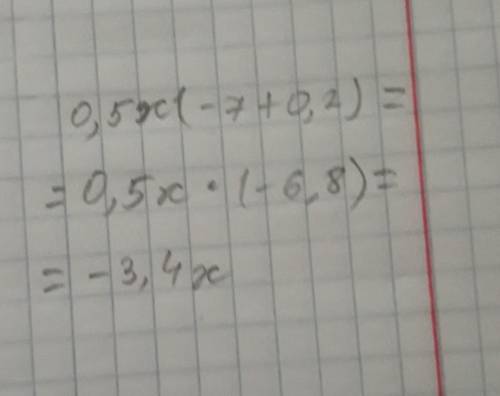 0,5x(-7+0,2)=
=0,5x·(-6,8)=
=-3,4x